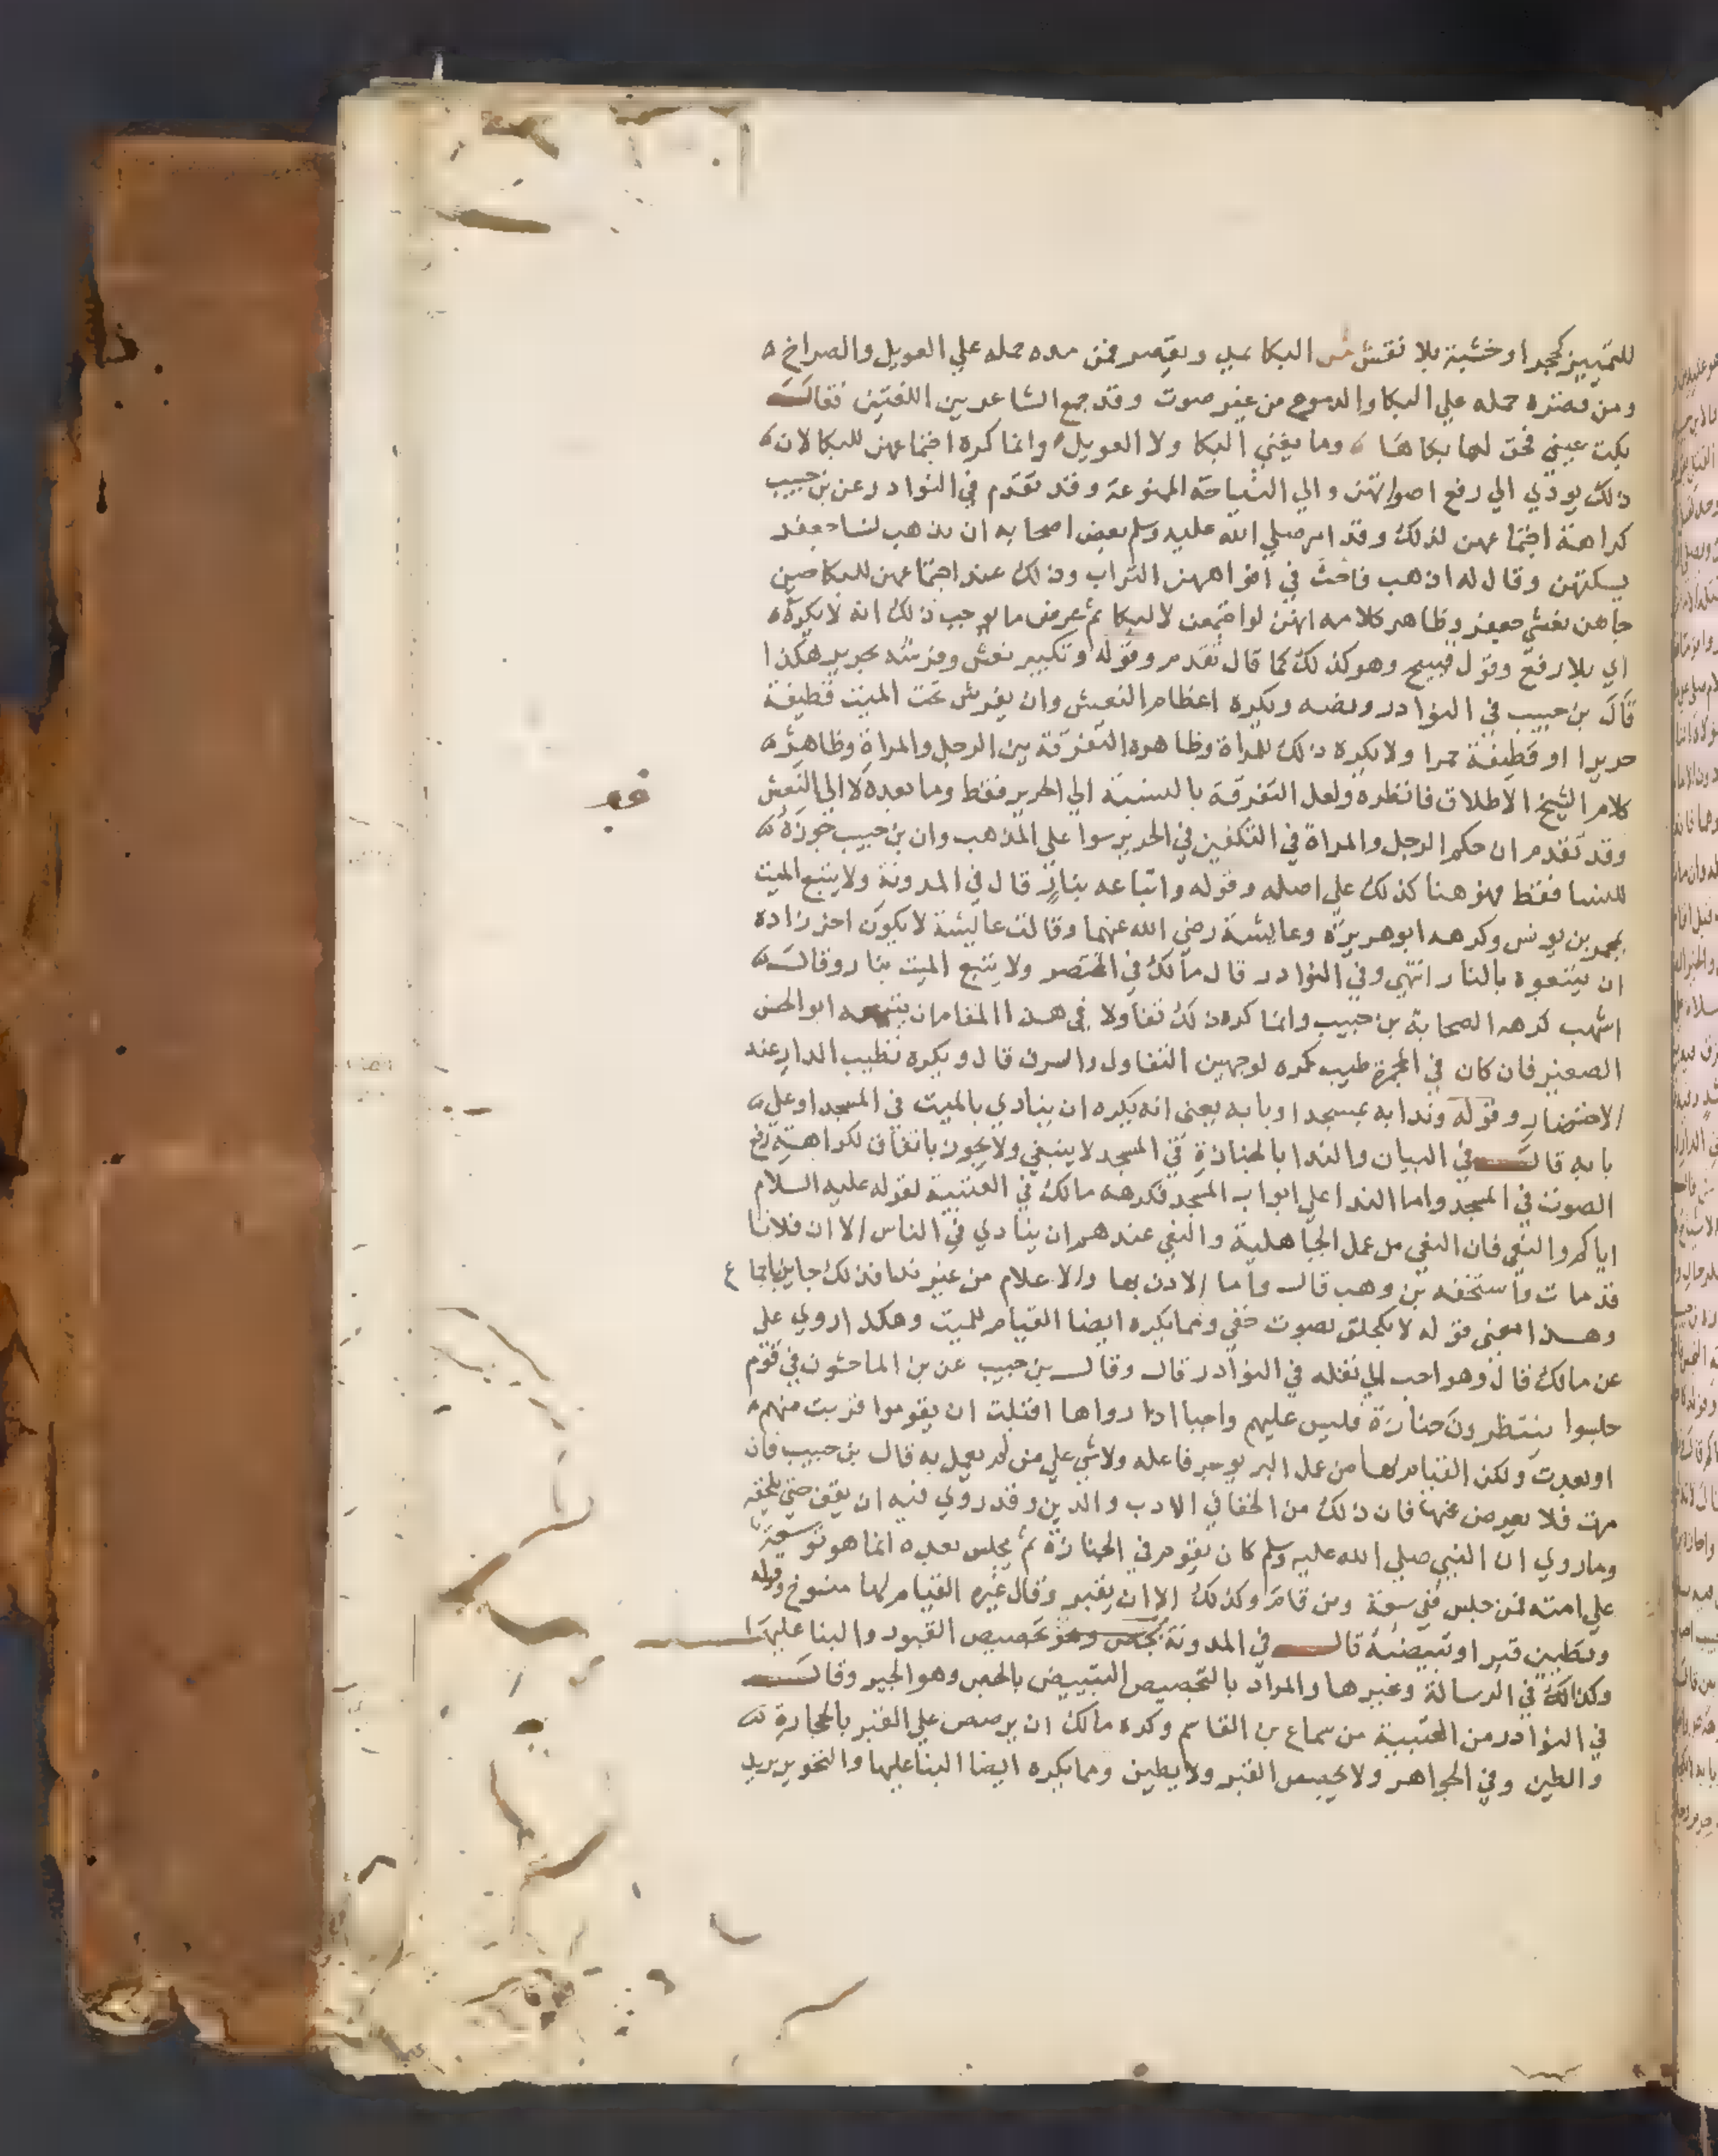 للتمييز كحجر او خشبة بلا نقش ش البكا يمد ويقصر فمن مده حمله علي العويل والصراخ
ومن قصره حمله علي البكا والدموع من غير صوت وقد جمع الشاعر بين اللغتين فقالــ
بكت عيني فحق لها بكاها وما يغني البكا ولا العويل وانما كره اجتماعهن للبكا لان
ذلك يودي الي رفع اصواتهن والي النياحة الممنوعة وقد تقدم في النوادر عن بن حبيب
كراهة اجتماعهن لذلك وقد امر صلي الله عليه وسلم بعض اصحابه ان يذهب لنسا جعفر
يسكتهن وقال له اذهب فاحث في افواههن التراب وذلك عند اجتماعهن للبكا حين
جاهن نعش جعفر وظاهر كلامه انهن لو اجتمعن لا للبكا ثم عرض ما يوجب ذلك انه لا يكره
اي بلا رفع وقول قبيح وهو كذلك كما قال تقدم وقوله وتكبير نعش وفرشه بحرير هكذا
قال بن حبيب في النوادر ونصه ويكره اعظام النعش وان يفرش تحت الميت قطيفة
حريرا او قطيفة حمرا ولا يكره ذلك للمراة وظاهره التفرقة بين الرجل والمراة وظاهر
كلام الشيخ الاطلاق فانظره ولعل التفرقة بالنسبة الي الحرير فقط وما بعده لا الي النعش
وقد تقدم ان حكم الرجل والمراة في التكفين في الحرير سوا علي المذهب وان بن حبيب جوزه
للنسا فقط فهو هنا كذلك علي اصله وقوله واتباعه بنار قال في المدونة ولا يتبع الميت
بمجمر بن يونس وكرهه ابو هريرة وعايشة رضي الله عنهما وقالت عايشة لا يكون اخر زاده
ان يتبعوه بالنار انتهي وفي النوادر قال مالك في المختصر ولا يتبع الميت بنار وقالــ
اشهب كرهه الصحابة بن حبيب وانما كره ذلك تفاولا في هذا المقام ان يتبعه ابو الحسن
الصغير فان كان في المجمرة طيب كره لوجهين التفاول والسرف قال ويكره تطييب الدار عند
الاحتضار وقوله وندا به بمسجد او بابه يعني انه يكره ان ينادي بالميت في المسجد او علي
بابه قالــ في البيان والندا بالجنازة في المسجد لا ينبغي ولا يجوز باتفاق لكراهة رفع
الصوت في المسجد واما الندا علي ابواب المسجد فكرهه مالك في العتبية لقوله عليه السلام
اياكم والنعي فان النعي من عمل الجاهلية والنعي عندهم ان ينادي في الناس الا ان فلانا
قد مات واستخفه بن وهب قالــ واما الاذن بها والاعلام من غير ندا فذلك جايز باجماع
وهــذا معني قوله لا بكحلق بصوت خفي ومما يكره ايضا القيام للميت وهكذا روي علي
عن مالك قال وهو احب الي نقله في النوادر قالــ وقالــ بن حبيب عن بن الماجشون في قوم
جلسوا ينتظرون جنازة فليس عليهم واجبا اذا راوها اقبلت ان يقوموا قربت منهم
او بعدت ولكن القيام لها من عمل البر يوجر فاعله ولا شي علي من لم يعمل به قال بن حبيب فان
مرت فلا يعرض عنها فان ذلك من الجفا في الادب والدين وقد روي فيه ان يقف حتي تخلفه
وما روي ان النبي صلي الله عليه وسلم كان يقوم في الجنازة ثم يجلس بعده انما هو توسعة
علي امته فمن جلس ففي سعة ومن قام وكذلك الا ان يقبر وقال غيره القيام لها منسوخ وقوله
وتطيين قبر او تبييضه قالــ في المدونة تجصيص القبور والبنا عليها
وكذالك في الرسالة وغيرها والمراد بالتجصيص التبييض بالجص وهو الجير وقالــ
في النوادر من العتبية من سماع بن القاسم وكره مالك ان يرصص علي القبر بالحجارة
والطين وفي الجواهر ولا يجصص القبر ولا يطين ومما يكره ايضا البنا عليها والتحويز يريد